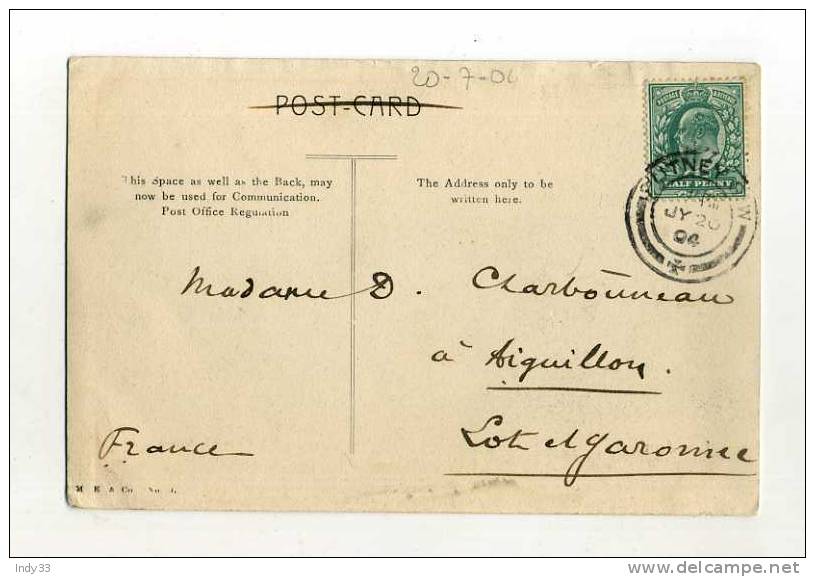 20-7-06
POST-CARD
This Space as well as the Back, may
now be used for Communication.
Post Office Regulation
The Address only to be
written here.
HALF PENNY
PUTNEY
JY 20
04
Madame D. Charbonneau
à Aiguillon.
Lot et Garonne
France
M. E & Co. No.
Indy33
delcampe.net